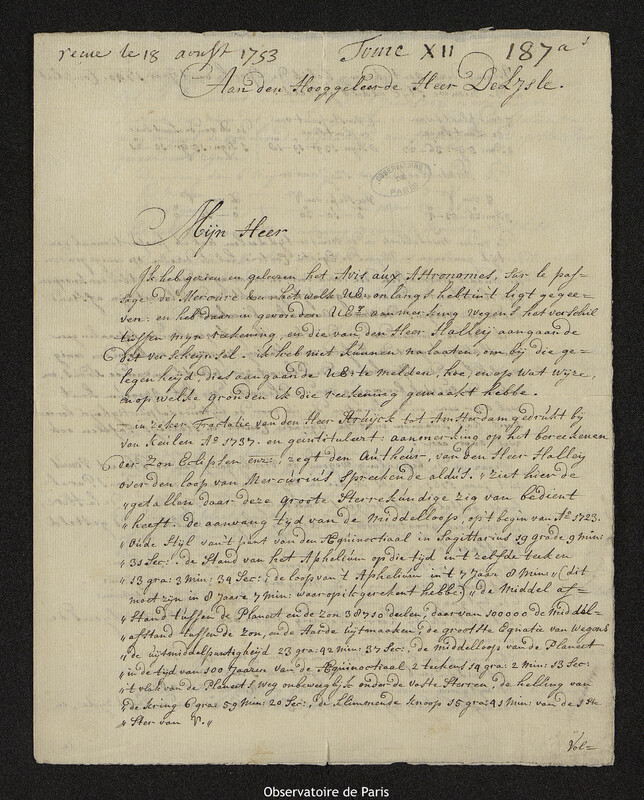 recue le 18 aoust 1753 Tome XII 187 a
Aan den Hooggeleerde Heer DeLysle.
OBSERVATOIRE
DE
PARIS
Mijn Heer
Ik heb gezien en gelezen het Avis aux Astronomes, sur le pas=
sage de Mercure &c: in het welke UE: onlangs hebt in't ligt gegee=
ven: en heb daar in gevonden UEs. aanmerking wegens het verschil
tussen mijn rekening, en die van den Heer Halleij aangaande
dit verscheijnsel. ik heb niet kunnen nalaten, om bij die ge=
legenheijd, dies aangaande UE: te melden, hoe, en op wat wijze,
en op welke gronden ik die reekening gemaakt hebbe.
in zeker Tractatie van den Heer Struijck tot Amsterdam gedrukt bij
van Keulen Ao 1737. en geintituleert: aanmerking op het bereekenen
der Zon Eclipsen enz:, zegt den Autheur, van den Heer Halleij
over den loop van Mercurius spreekende aldus. „ziet hier de
„getallen daar deze groote Sterrekundige zig van bedient
„heeft. de aanvang tijd van de Middelloop, op't begin van Ao. 1723.
„Oude Stijl van't punt van den Æquinoctiaal in Sagittarius 19 grade 9 min:
„31 Sec: de Stand van het Aphelium op die tijd in't zelfde teeken
„13 gra: 3 min: 34 Sec: de loop van't Aphelium in't 7 Jaar 8 Min: „(dit
moet zijn in 8 Jaare 7 min: waar op ik gerekent hebbe) „de Middel af=
„Stand tussen de Planeet en de Zon 38710 deelen, daar van 100000 de middel=
„afstand tussen de Zon, en de Aarde uijtmaaken, de grootste Equatie van wegens
„de uijtmiddelpuntigheijd 23 gra: 42 Min: 37 Sec: de middelloop van de Planeet
„in de tijd van 100 Jaaren van de Æquinoctiaal 2 tekens 14 gra: 2 min: 13 Sec:
„'t vlak van de Planeets weg onbeweeglijk onder de vaste Sterren, de helling van
„de kring 6 gra: 59 Min: 20 Sec:, de klimmende knoop 15 gra: 41 Min: van de 1ste
„Ster van ♈.„
Vol=
Observatoire de Paris